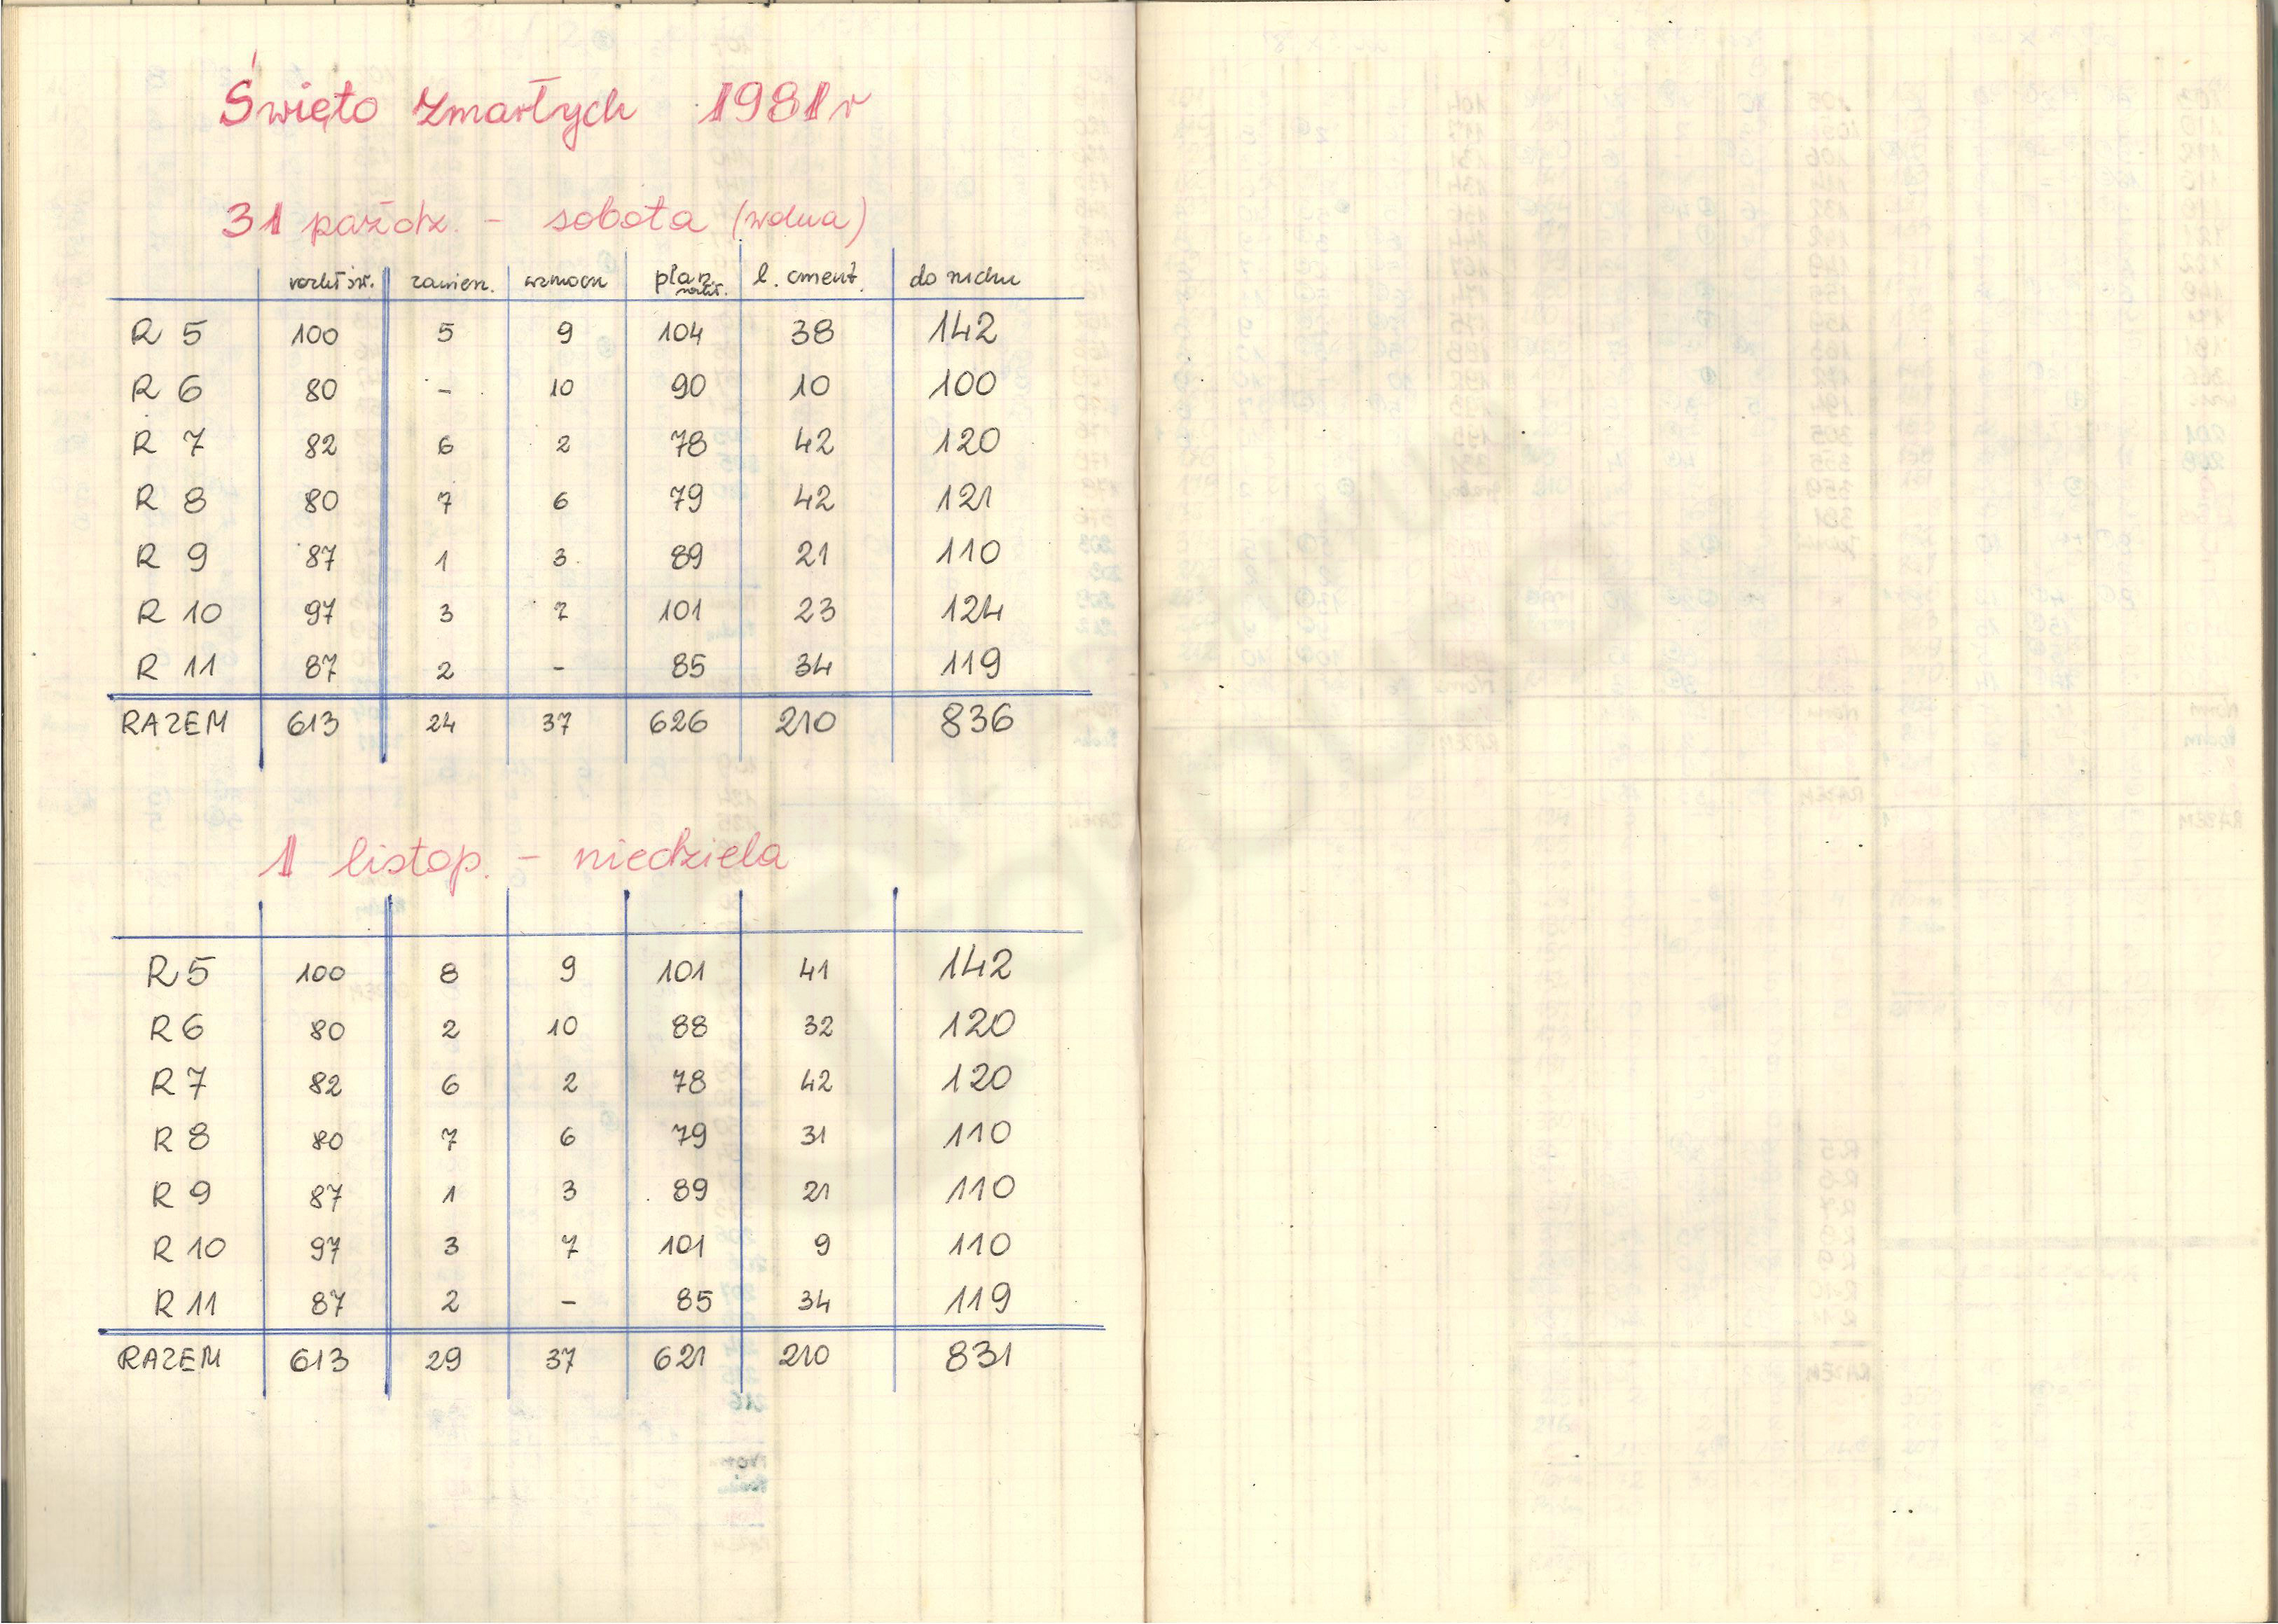 Święto Zmarłych 1981r
31 paźdz. - sobota (wolna)
rozkł św. zawiesz. wzmocn plan. rozkł. l. cment. do ruchu
R 5 100 5 9 104 38 142
R 6 80 - 10 90 10 100
R 7 82 6 2 78 42 120
R 8 80 7 6 79 42 121
R 9 87 1 3 89 21 110
R 10 97 3 7 101 23 124
R 11 87 2 - 85 34 119
RAZEM 613 24 37 626 210 836
1 listop. - niedziela
R 5 100 8 9 101 41 142
R 6 80 2 10 88 32 120
R 7 82 6 2 78 42 120
R 8 80 7 6 79 31 110
R 9 87 1 3 89 21 110
R 10 97 3 7 101 9 110
R 11 87 2 - 85 34 119
RAZEM 613 29 37 621 210 831